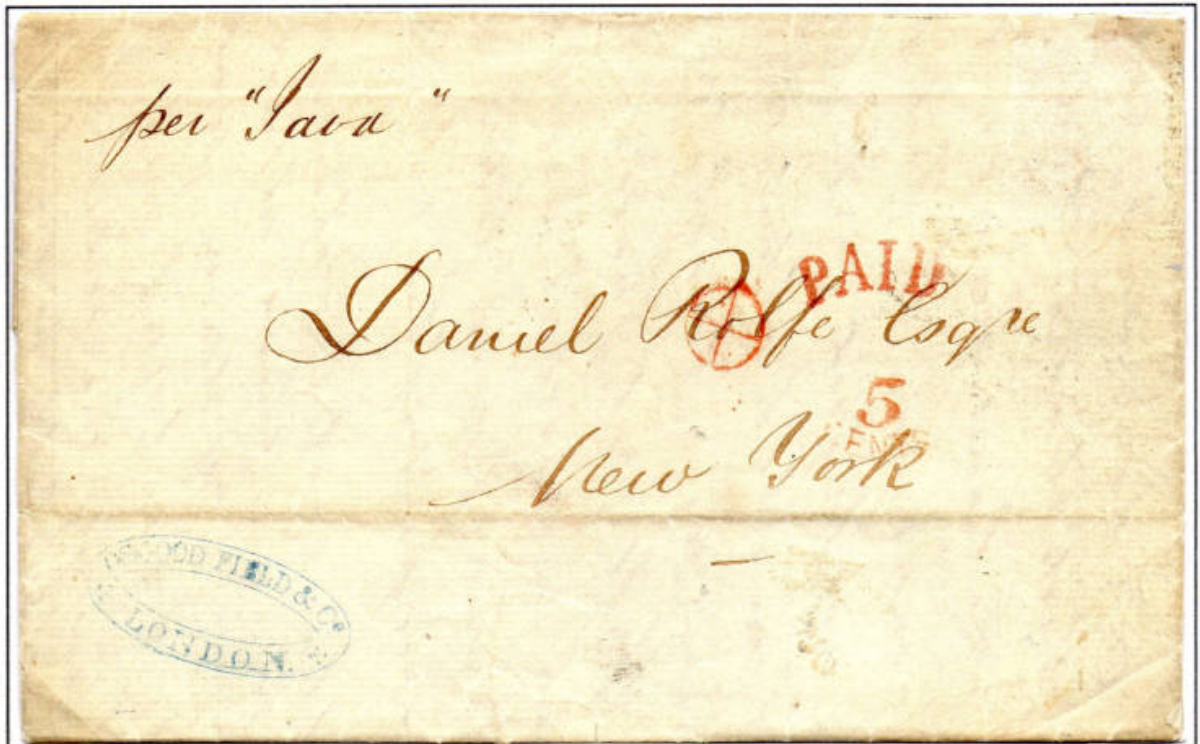 per "Java"
PAID
Daniel Rolfe Esqre
5
CENTS
New York
OSGOOD FIELD & Co
LONDON. E